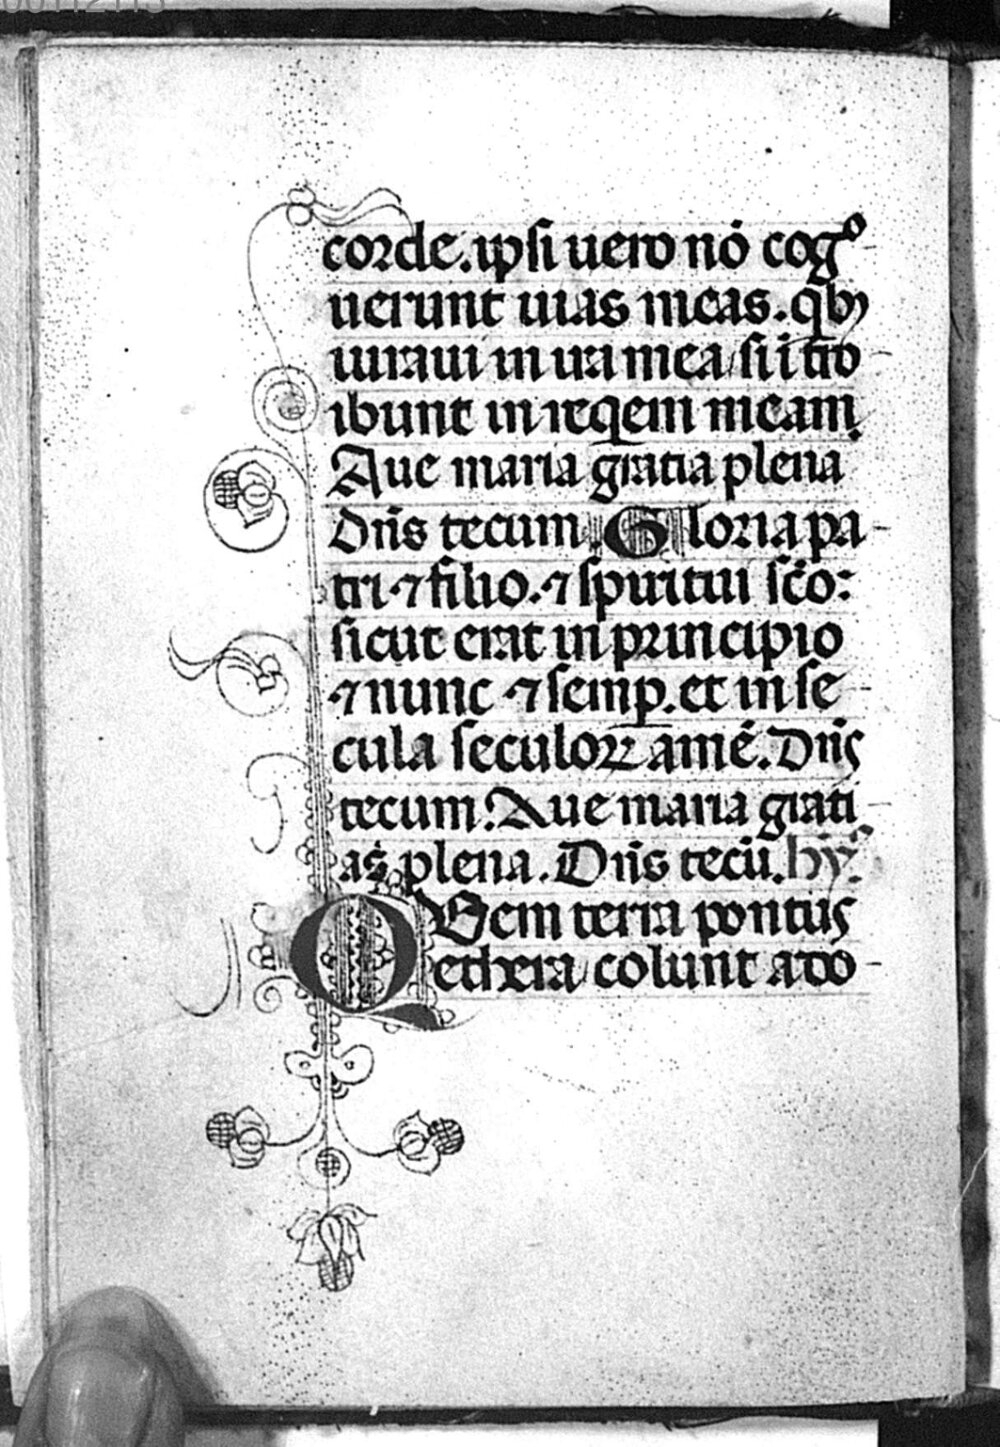 corde. ipsi uero nō cogº
uerunt uias meas. qb9
iuraui in ira mea si ītro
ibunt in reqem meam.
Aue maria gratia plena
Dn̄s tecum. Gloria pa-
tri ⁊ filio. ⁊ spiritui sc̄o:
sicut erat in principio
⁊ nunc ⁊ semp. et in se-
cula seculoꝝ amē. Dn̄s
tecum. Aue maria grati-
a plena. Dn̄s tecū. hyꝰ.
QUem terra pontus
ethera colunt ado-